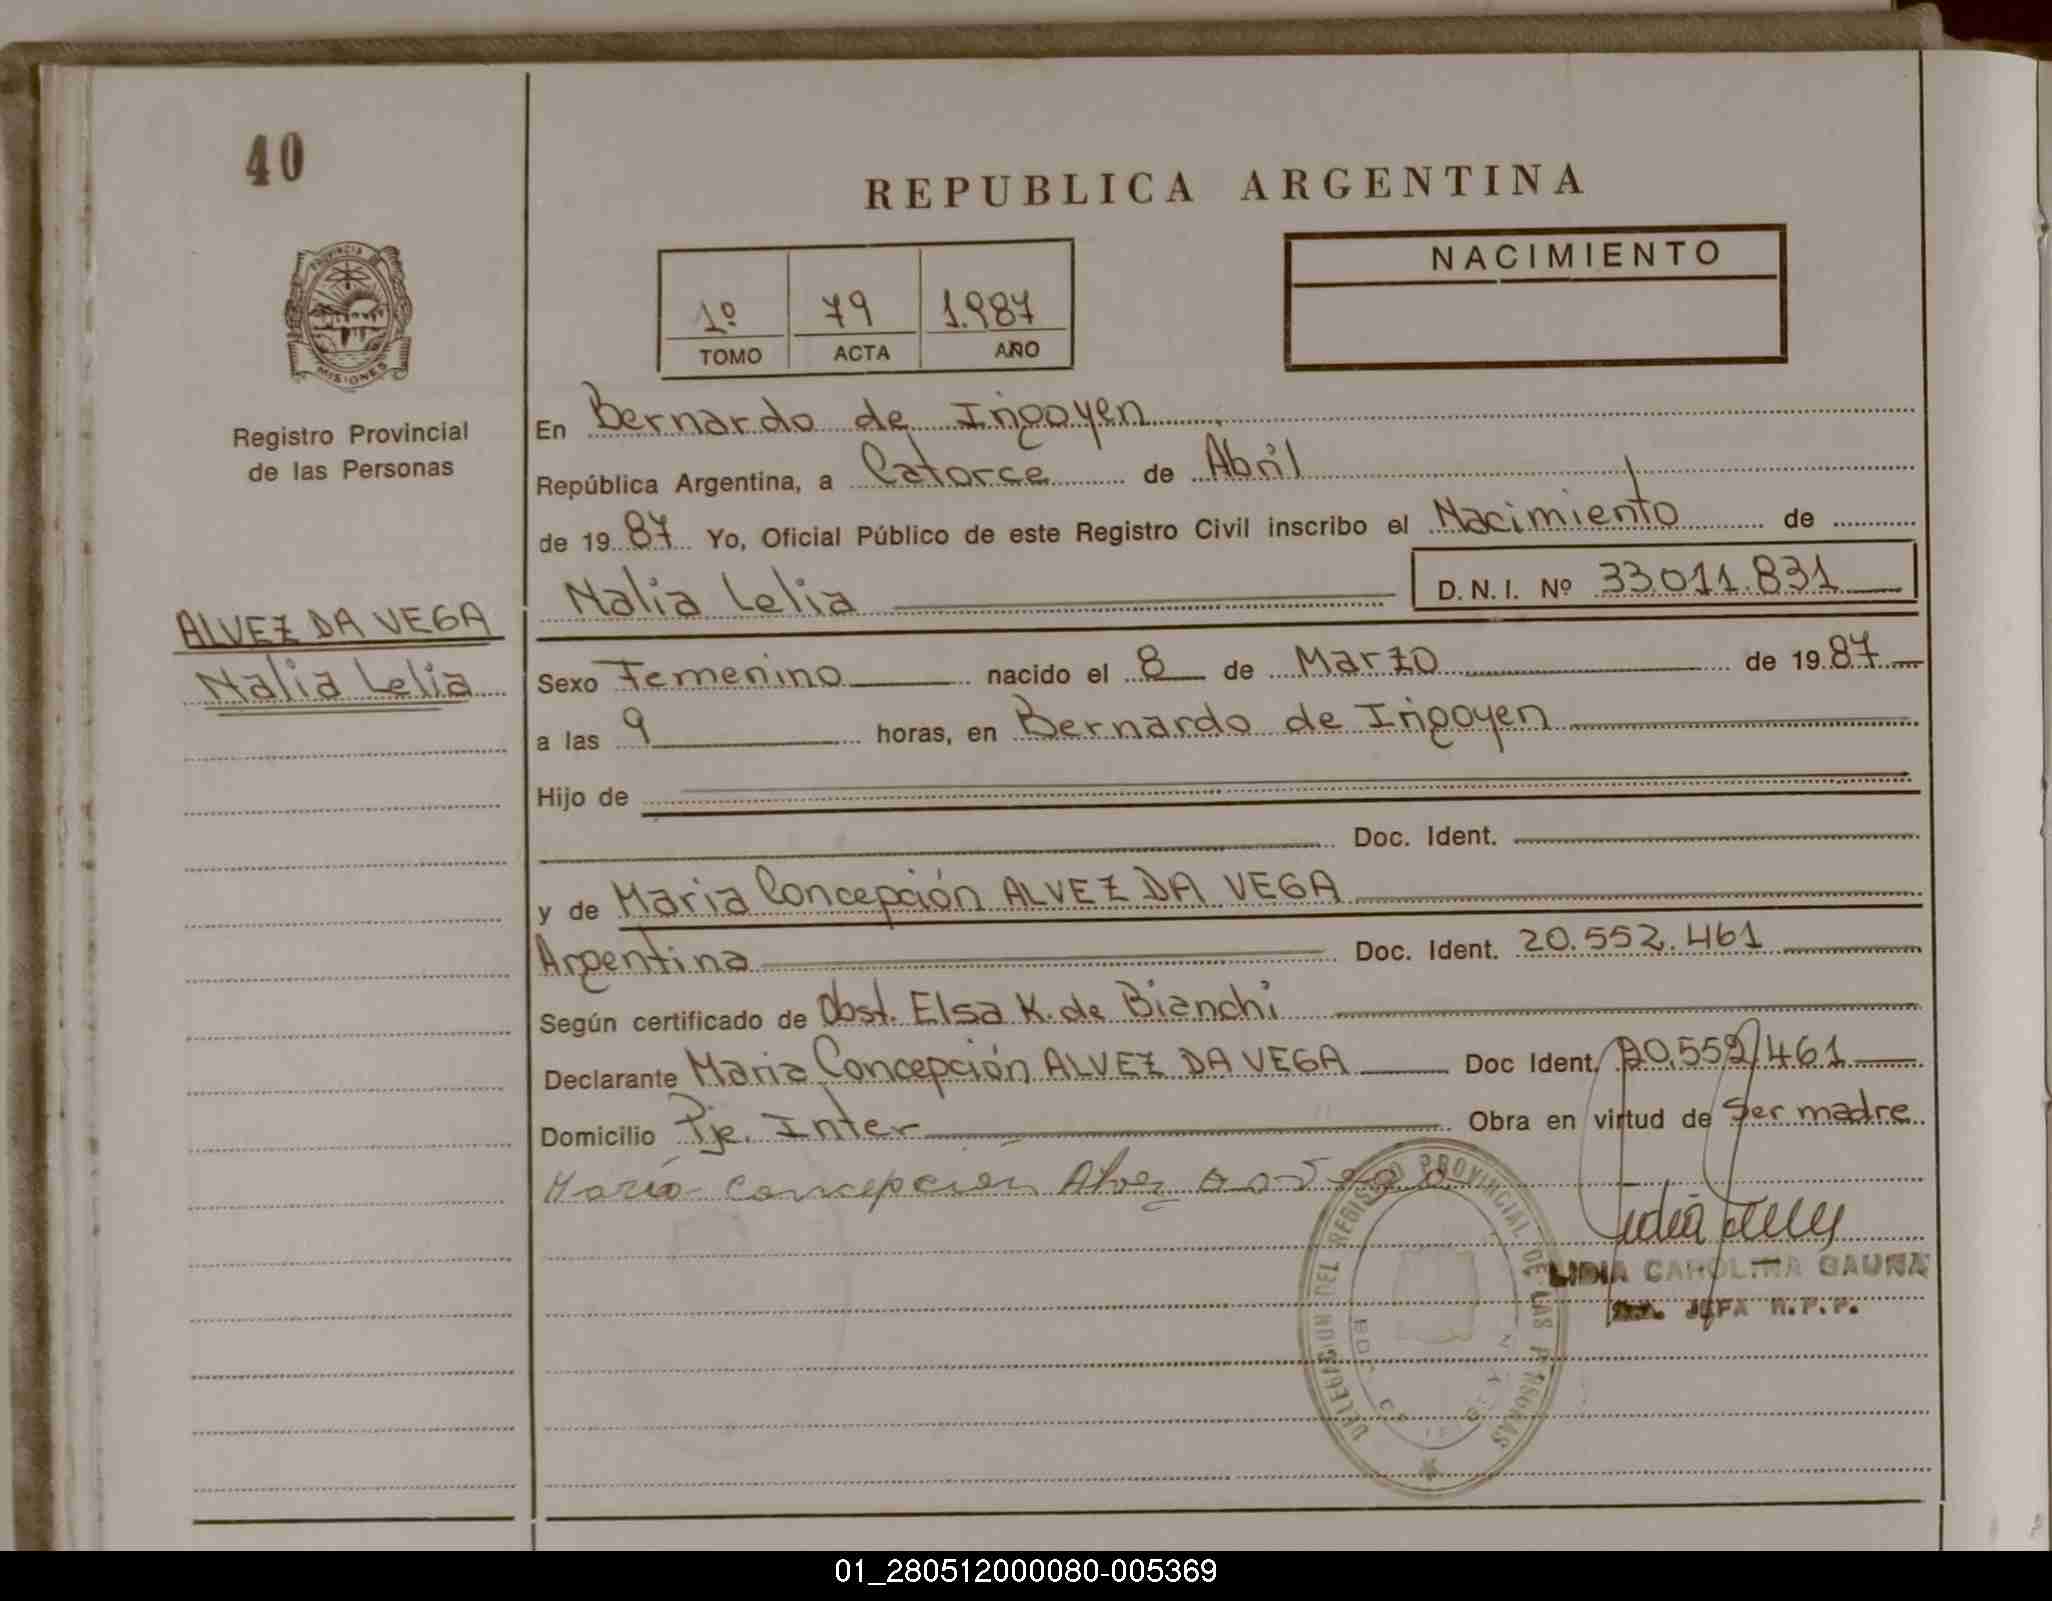 40
REPUBLICA ARGENTINA
PROVINCIA DE
MISIONES
Registro Provincial
de las Personas
1º 79 1.987
TOMO ACTA AÑO
NACIMIENTO
En Bernardo de Irigoyen
República Argentina, a Catorce de Abril
de 19 87 Yo, Oficial Público de este Registro Civil inscribo el Nacimiento de
Nalia Lelia D.N.I. Nº 33.011.831
ALVEZ DA VEGA
Nalia Lelia
Sexo Femenino nacido el 8 de Marzo de 19 87
a las 9 horas, en Bernardo de Irigoyen
Hijo de
Doc. Ident.
y de Maria Concepción ALVEZ DA VEGA
Argentina Doc. Ident. 20.552.461
Según certificado de Obst. Elsa K. de Bianchi
Declarante Maria Concepción ALVEZ DA VEGA Doc Ident. 20.552.461
Domicilio Pje. Inter Obra en virtud de ser madre
Maria Concepción Alvez da vega
DELEGACION DEL REGISTRO PROVINCIAL DE LAS PERSONAS
LIDIA CAROLINA GAUNA
JEFA R.P.P.
01_280512000080-005369